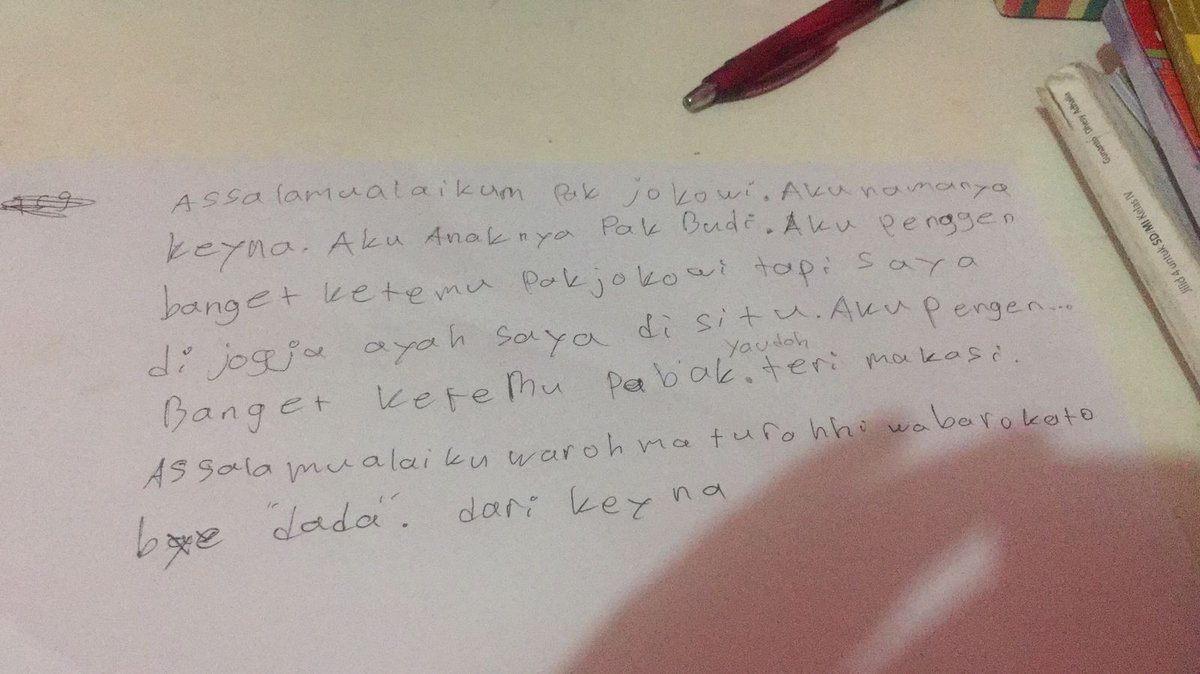 Assalamualaikum Pak jokowi. Aku namanya
keyna. Aku Anaknya Pak Budi. Aku penggen
banget ketemu Pak jokowi tapi saya
di jogja ayah saya di situ. Aku pengen...
yaudah
Banget keteMu Pabak. teri makasi.
Assalamualaiku warohmaturohhi wabarokato
bye "dada". dari keyna
Jilid 4 untuk SD/MI Kelas IV